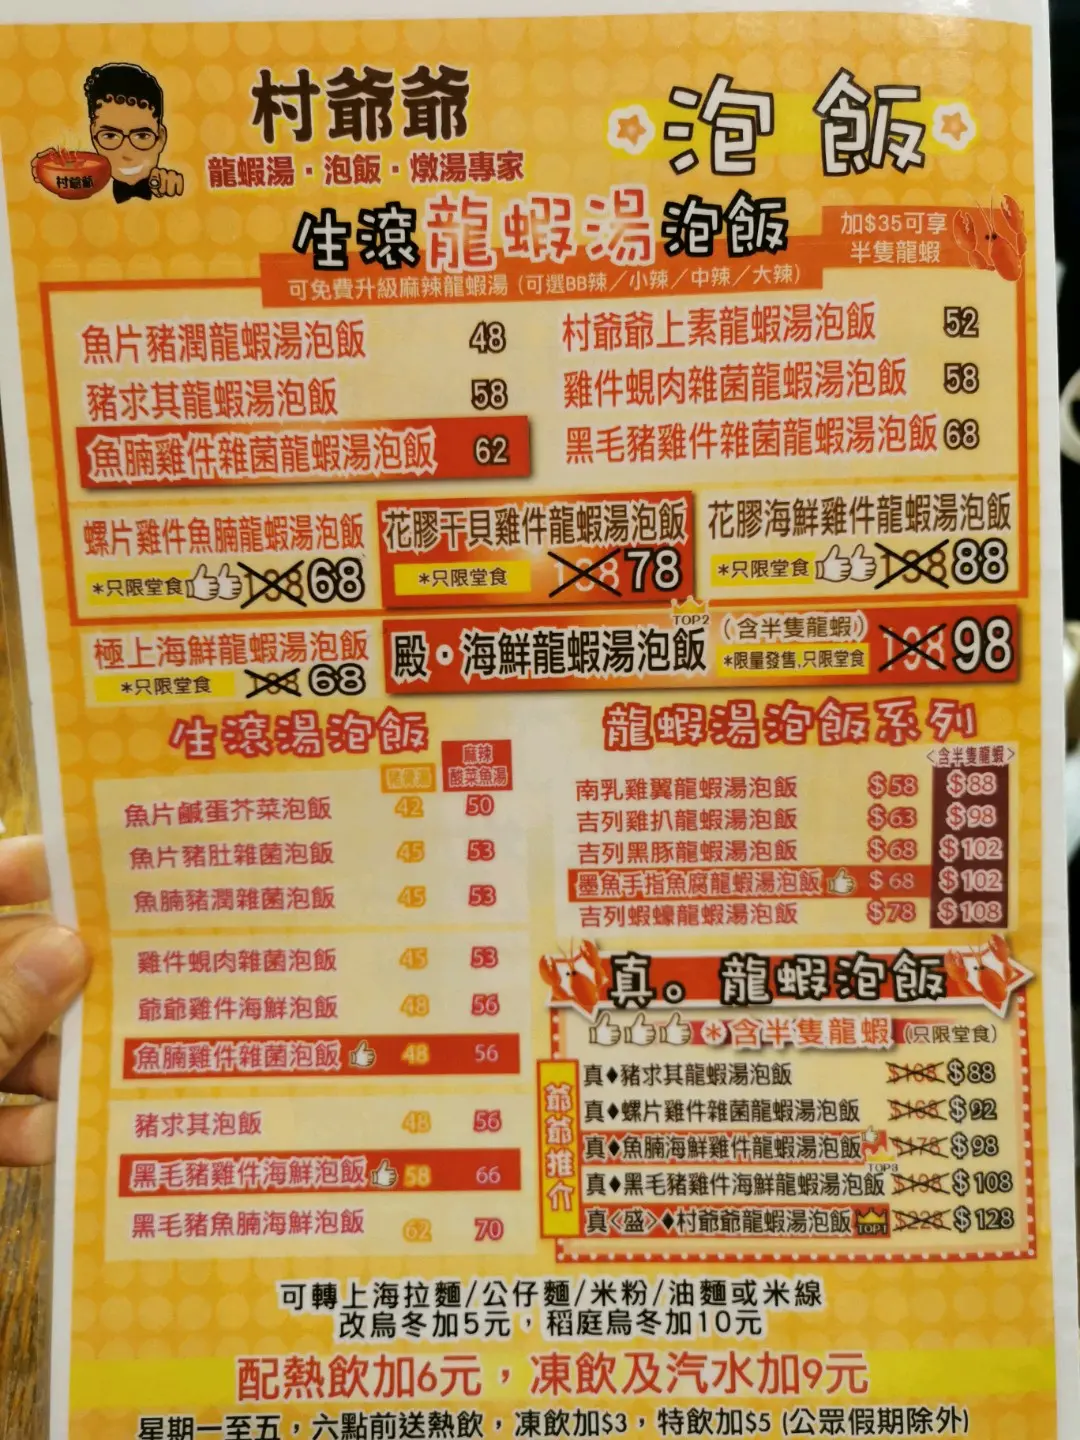 村爺爺
龍蝦湯・泡飯・燉湯專家
村爺爺
泡飯
生滾龍蝦湯泡飯
加$35可享
半隻龍蝦
可免費升級麻辣龍蝦湯 (可選BB辣／小辣／中辣／大辣)
魚片豬潤龍蝦湯泡飯 48
豬求其龍蝦湯泡飯 58
魚腩雞件雜菌龍蝦湯泡飯 62
村爺爺上素龍蝦湯泡飯 52
雞件蜆肉雜菌龍蝦湯泡飯 58
黑毛豬雞件雜菌龍蝦湯泡飯 68
螺片雞件魚腩龍蝦湯泡飯
*只限堂食 68
花膠干貝雞件龍蝦湯泡飯
*只限堂食 78
花膠海鮮雞件龍蝦湯泡飯
*只限堂食 88
極上海鮮龍蝦湯泡飯
*只限堂食 68
殿・海鮮龍蝦湯泡飯 TOP2 (含半隻龍蝦)
*限量發售,只限堂食 198 98
生滾湯泡飯
豬骨湯 麻辣
酸菜魚湯
魚片鹹蛋芥菜泡飯 42 50
魚片豬肚雜菌泡飯 45 53
魚腩豬潤雜菌泡飯 45 53
雞件蜆肉雜菌泡飯 45 53
爺爺雞件海鮮泡飯 48 56
魚腩雞件雜菌泡飯 48 56
豬求其泡飯 48 56
黑毛豬雞件海鮮泡飯 58 66
黑毛豬魚腩海鮮泡飯 62 70
龍蝦湯泡飯系列
<含半隻龍蝦>
南乳雞翼龍蝦湯泡飯 $58 $88
吉列雞扒龍蝦湯泡飯 $63 $98
吉列黑豚龍蝦湯泡飯 $68 $102
墨魚手指魚腐龍蝦湯泡飯 $68 $102
吉列蝦蠔龍蝦湯泡飯 $78 $108
真。龍蝦泡飯
*含半隻龍蝦 (只限堂食)
爺爺推介
真♦豬求其龍蝦湯泡飯 $168 $88
真♦螺片雞件雜菌龍蝦湯泡飯 $168 $92
真♦魚腩海鮮雞件龍蝦湯泡飯 TOP3 $178 $98
真♦黑毛豬雞件海鮮龍蝦湯泡飯 $198 $108
真<盛>♦村爺爺龍蝦湯泡飯 TOP1 $228 $128
可轉上海拉麵/公仔麵/米粉/油麵或米線
改烏冬加5元，稻庭烏冬加10元
配熱飲加6元，凍飲及汽水加9元
星期一至五，六點前送熱飲，凍飲加$3，特飲加$5 (公眾假期除外)